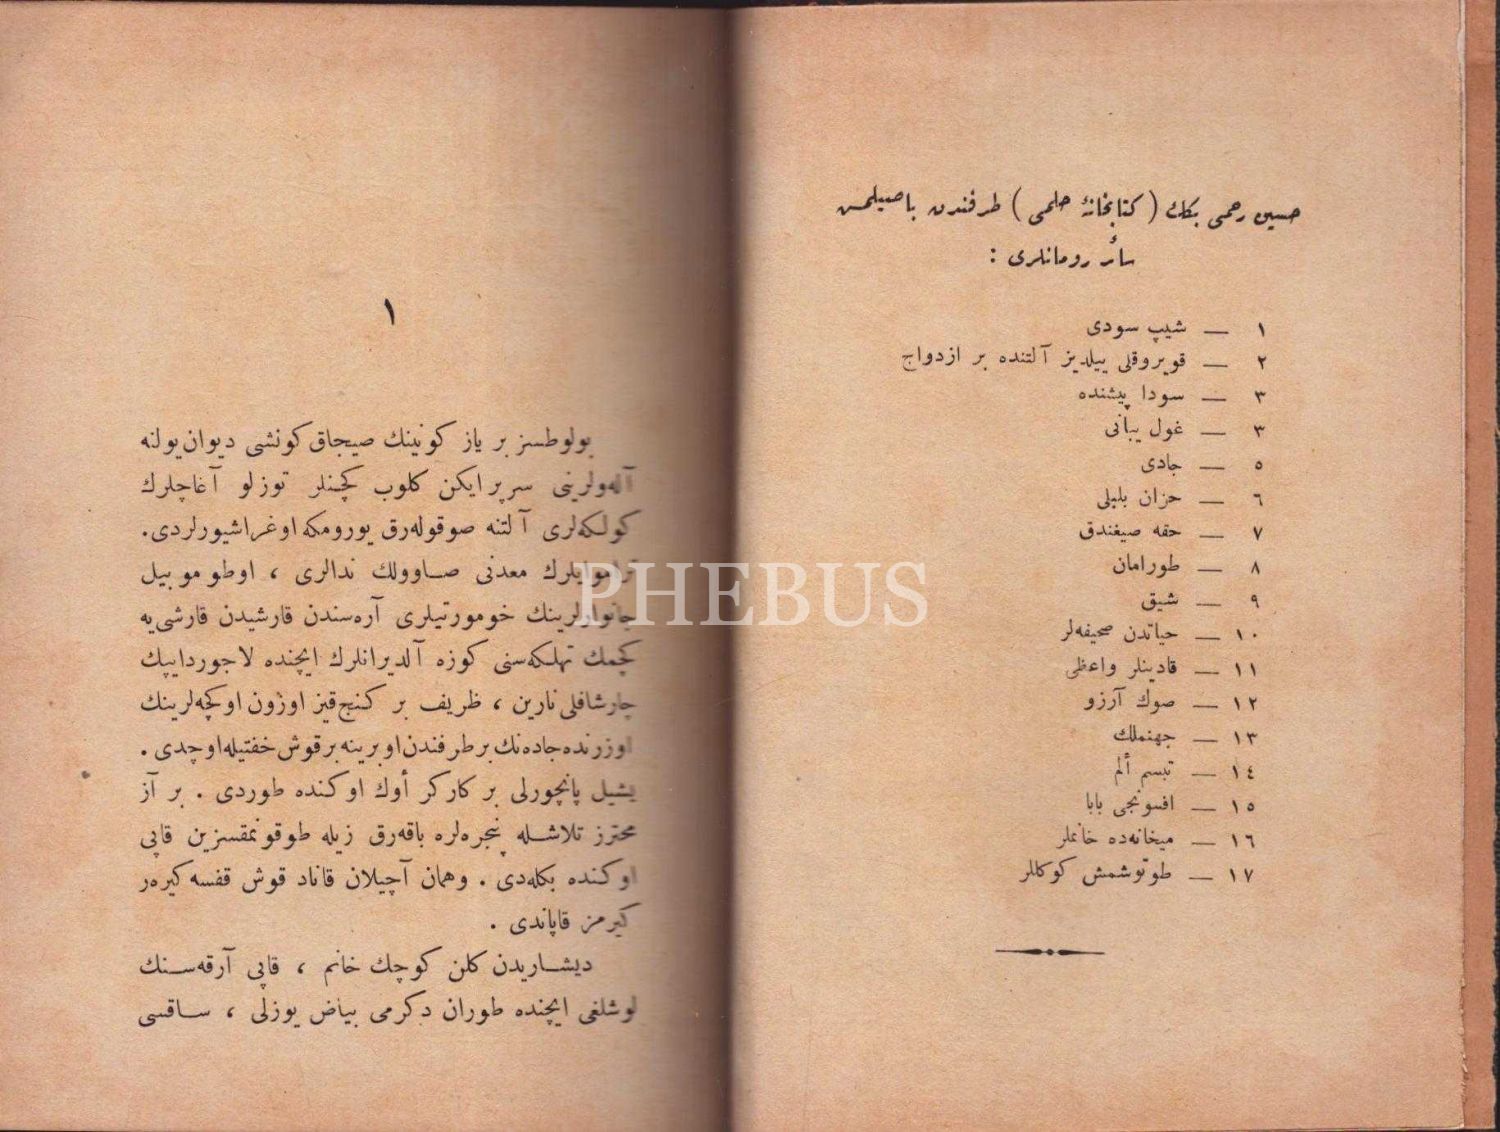 حسین رحمی بكك (كتابخانهٔ حلمی) طرفندن باصیلمش
سائر رومانلری :
١ — شیپ سودی
٢ — قویروقلی ییلدیز آلتنده بر ازدواج
٣ — سودا پیشنده
٣ — غول یبانی
٥ — جادی
٦ — حزان بلبلی
٧ — حقه صیغندق
٨ — طورامان
٩ — شیق
١٠ — حیاتدن صحیفه‌لر
١١ — قادینلر واعظی
١٢ — صوك آرزو
١٣ — جهنملك
١٤ — تبسم ألم
١٥ — افسونجی بابا
١٦ — میخانه‌ده خانملر
١٧ — طوتوشمش كوكللر
١
بولوطسز بر یاز كونینك صیجاق كونشی دیوان‌یولنه
آله‌ولرینی سرپر ایكن كلوب كچنلر توزلو آغاچلرك
كولكه‌لری آلتنه صوقوله‌رق یورومكه اوغراشیورلردی.
تراموایلرك معدنی صاوولك ندالری ، اوطوموبیل
جانوارلرینك خومورتیلری آره‌سندن قارشیدن قارشی‌یه
كچمك تهلكه‌سنی كوزه آلدیرانلرك ایچنده لاجوردایپك
چارشافلی نارین ، ظریف بر كنج قیز اوزون اوكچه‌لرینك
اوزرنده جاده‌نك بر طرفندن اوبرینه بر قوش خفتیله اوچدی .
یشیل پانچورلی بر كارگر أوك اوكنده طوردی . بر آز
محترز تلاشله پنجره‌لره باقه‌رق زیله طوقونمقسزین قاپی
اوكنده بكله‌دی . وهمان آچیلان قاناد قوش قفسه كیره‌ر
كیرمز قاپاندی .
دیشاریدن كلن كوچك خانم ، قاپی آرقه‌سنك
لوشلغی ایچنده طوران دكرمی بیاض یوزلی ، ساقسی
PHEBUS